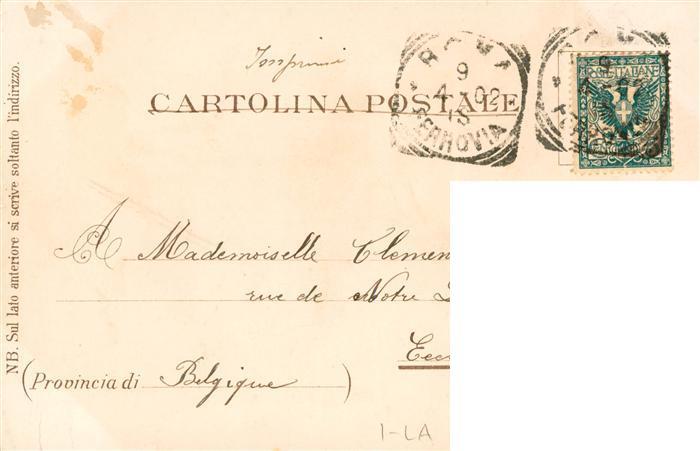 Imprimé
CARTOLINA POSTALE
ROMA
9
4-02
18
FERROVIA
POSTE ITALIANE
NB. Sul lato anteriore si scrive soltanto l'indirizzo.
A Mademoiselle Clemen
rue de Notre
Eec
(Provincia di Belgique )
1-LA